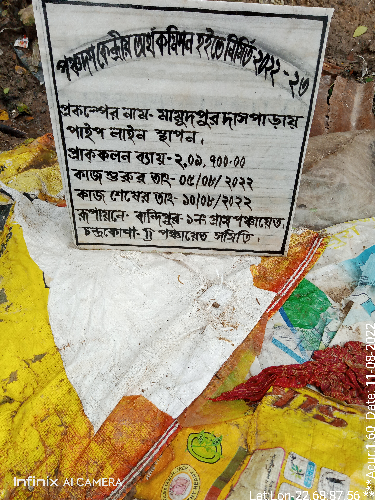 পঞ্চদশ কেন্দ্রীয় অর্থ কমিশন হইতে নির্মিত-২০২২-২৩
প্রকল্পের নাম- মামুদপুর দাসপাড়ায়
পাইপ লাইন স্থাপন.
প্রাককলন ব্যয়- ২,০৯,৭০০.০০
কাজ শুরুর তাং- ০৫/০৮/ ২০২২
কাজ শেষের তাং- ১০/০৮/২০২২
রূপায়নে- বান্দিপুর- ১নং গ্রাম পঞ্চায়েত
চন্দ্রকোণা- II পঞ্চায়েত সমিতি.
Infinix AI CAMERA
Lat Lon-22 68 87 56
***Acur:1.60 Date: 11-08-2022